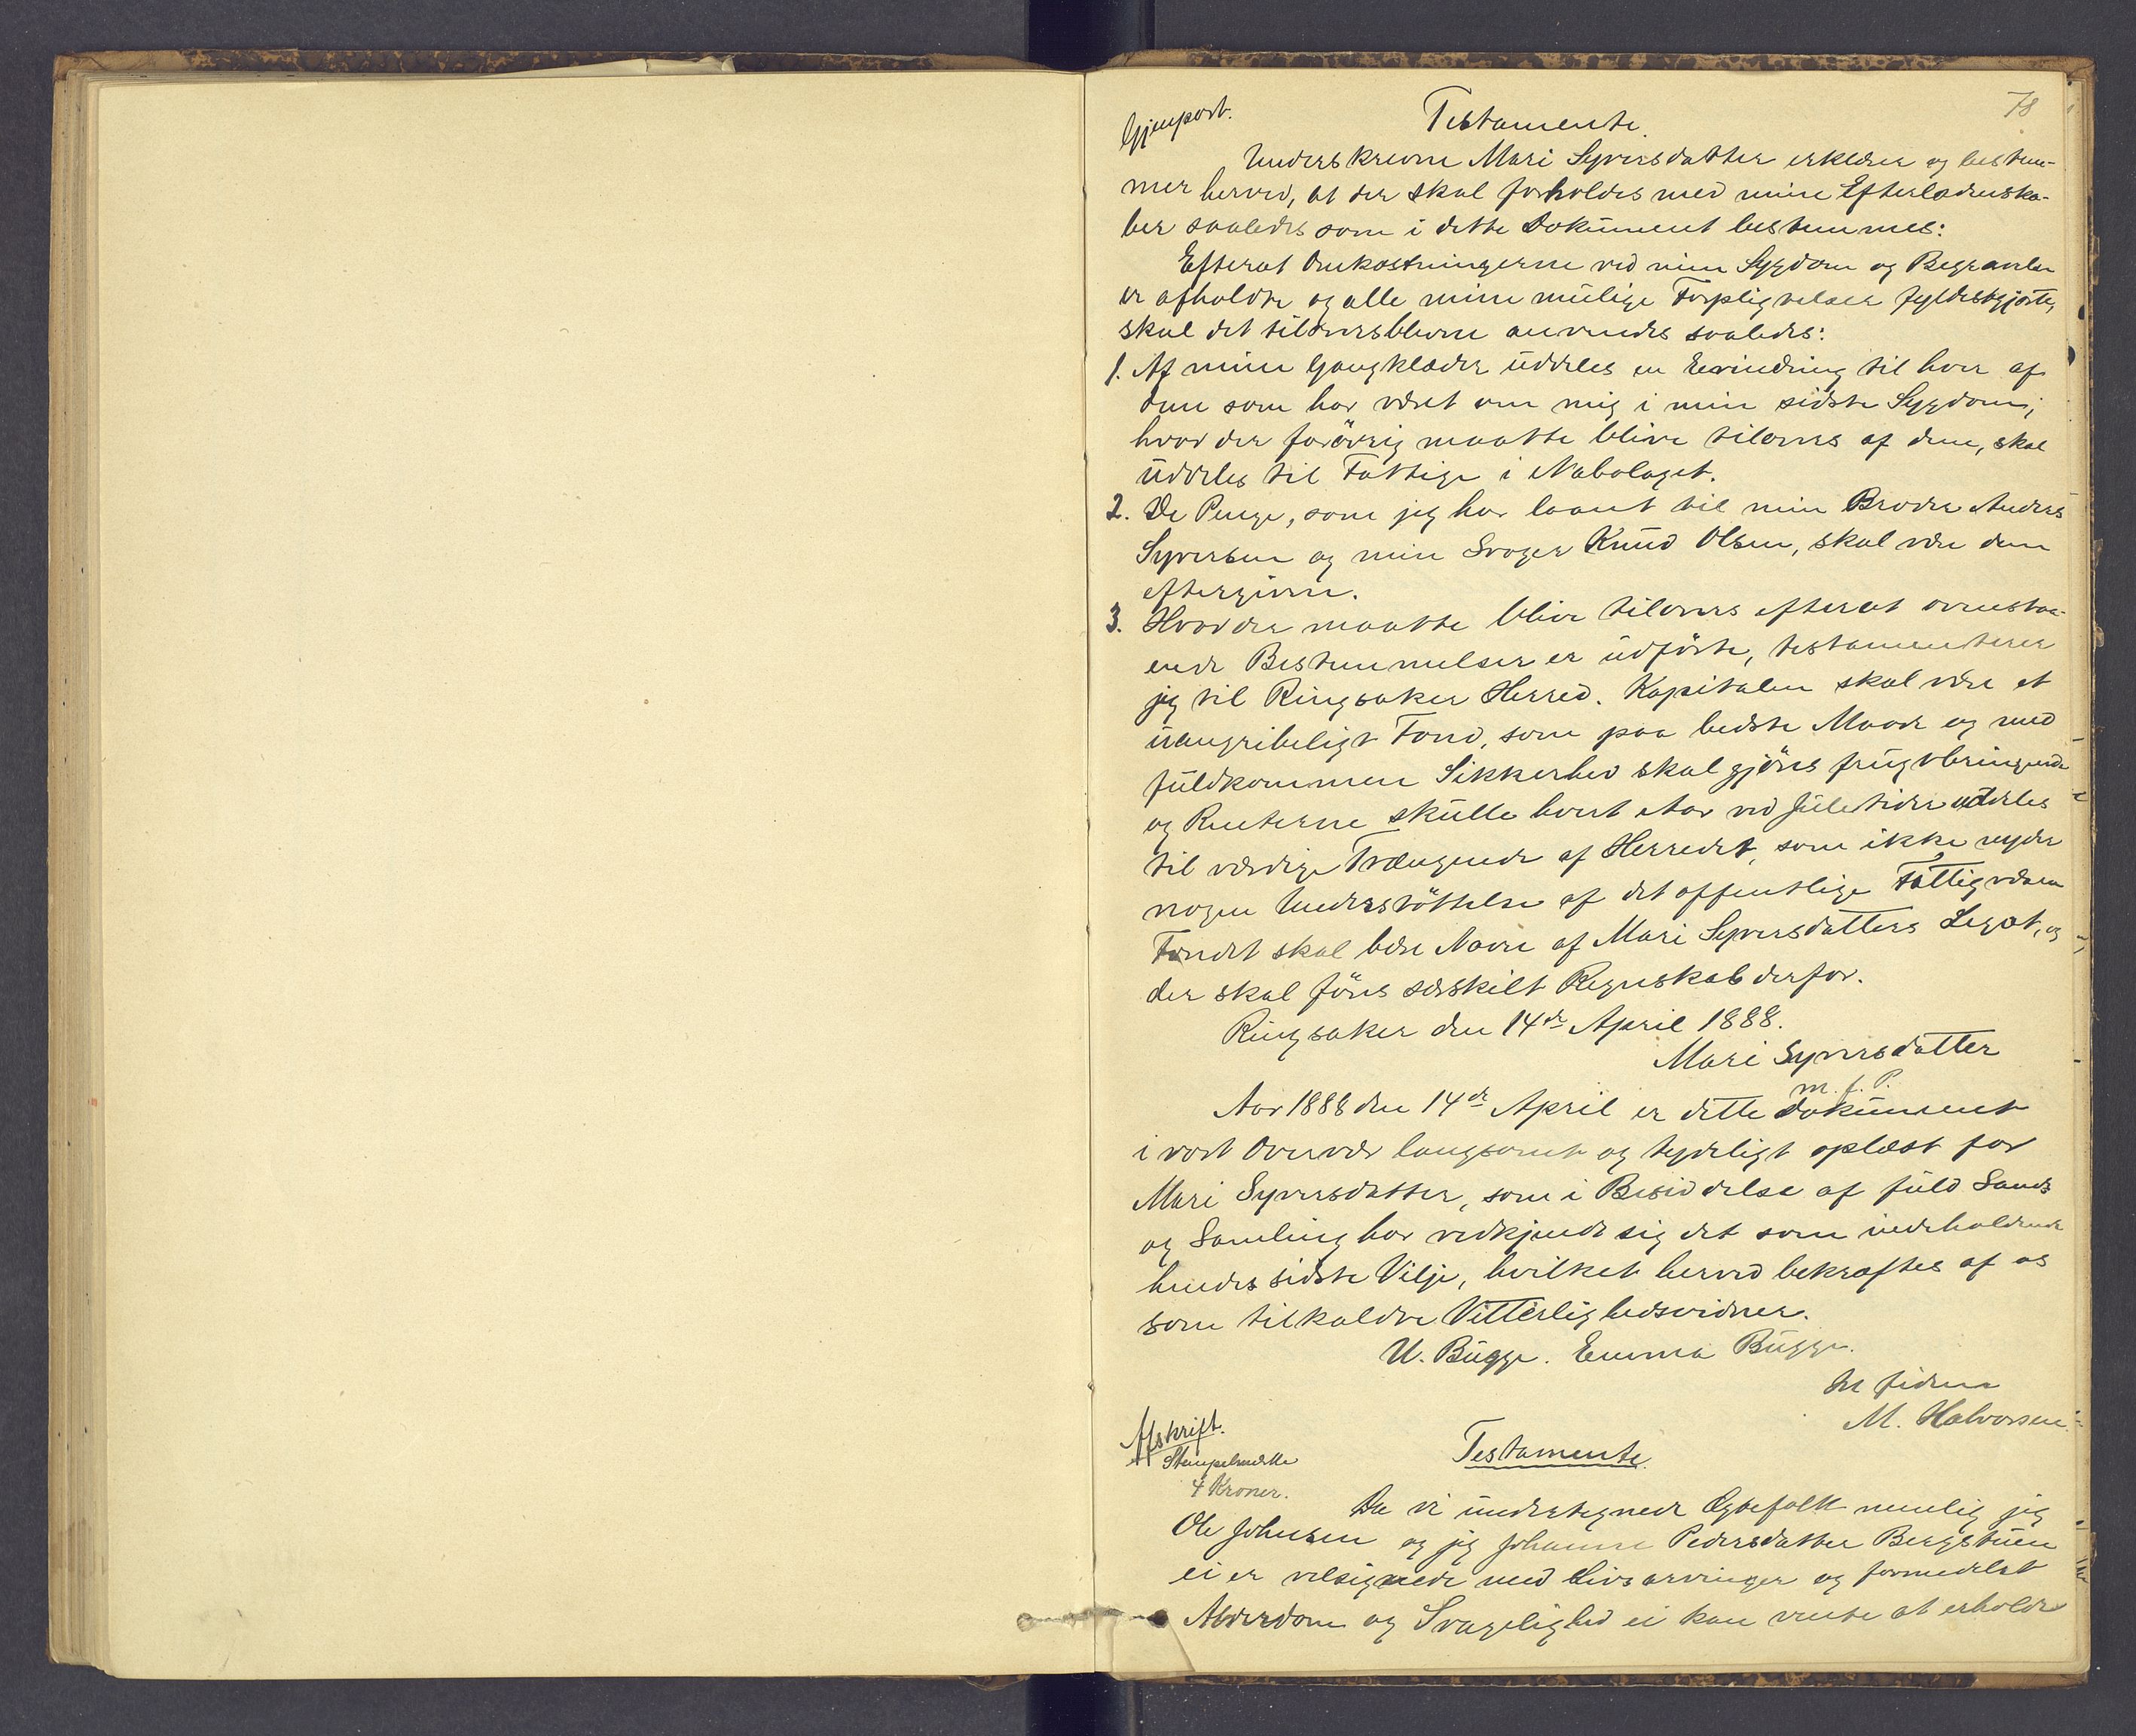 78
Gjenpart.
Testamente.
Underskrevne Mari Syversdatter erklærer og bestem-
mer herved, at der skal forholdes med mine Efterladenska-
ber saaledes som i dette Dokument bestemmes:
Efterat Omkostningerne ved min Sygdom og Begravelse
er afholdte og alle mine mulige Forpligtelser fyldestgjorte,
skal det tiloversblevne anvendes saaledes:
1. Af mine Gangklæder uddeles en Erindring til hver af
dem som har været om mig i min sidste Sygdom;
hvad der forøvrig maatte blive tilovers af dem, skal
uddeles til Fattige i Nabolaget.
2. De Penge, som jeg har laant til min Broder Anders
Syversen og min Svoger Knud Olsen, skal være dem
eftergivne.
3. Hvad der maatte blive tilovers efterat ovenstaa-
ende Bestemmelser er udførte, testamenterer
jeg til Ringsaker Herred. Kapitalen skal være et
uangribeligt Fond, som paa bedste Maade og med
fuldkommen Sikkerhed skal gjøres frugtbringende
og Renterne skulle hvert Aar ved Juletider uddeles
til værdige Trængende af Herredet, som ikke nyder
nogen Understøttelse af det offentlige Fattigvæsen
Fondet skal bære Navn af Mari Syversdatters Legat, og
der skal føres særskilt Regnskab derfor.
Ringsaker den 14de April 1888.
Mari Syversdatter
m. f. P.
Aar 1888 den 14de April er dette Dokument
i vort Overvær langsomt og tydeligt oplæst for
Mari Syversdatter, som i Besiddelse af fuld Sands
og Samling har vedkjendt sig det som indeholdende
hendes sidste Vilje, hvilket herved bekræftes af os
som tilkaldte Vitterlighedsvidner.
U. Bugge. Emma Bugge.
In fidem
M. Halvorsen
Afskrift.
Stempelmærke
4 Kroner.
Testamente.
Da vi undertegnede Egtefolk nemlig jeg
Ole Johnsen og jeg Johanne Pedersdatter Bergstuen
ei er velsignede med Livsarvinger og formedelst
Alderdom og Svagelighed ei kan vente at erholde